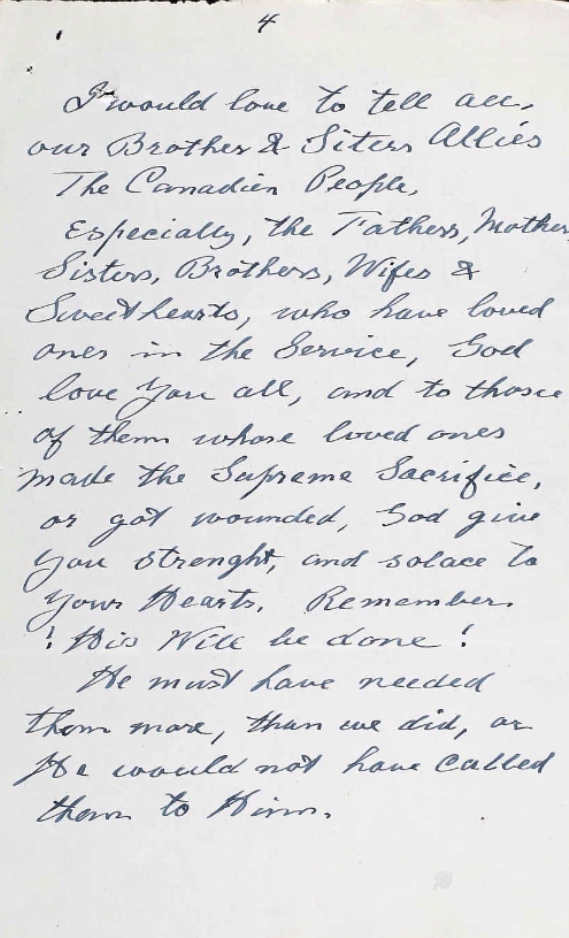 4
I would love to tell all,
our Brother & Siters Allies
The Canadien People,
Especially, the Fathers, Mother
Sisters, Brothers, Wifes &
Sweethearts, who have loved
ones in the Service, God
love You all, and to those
of them whose loved ones
made the Supreme Sacrifice,
or got wounded, God give
you strenght, and solace to
Your Hearts. Remember.
! His Will be done !
He must have needed
them more, than we did, or
He would not have called
them to Him.